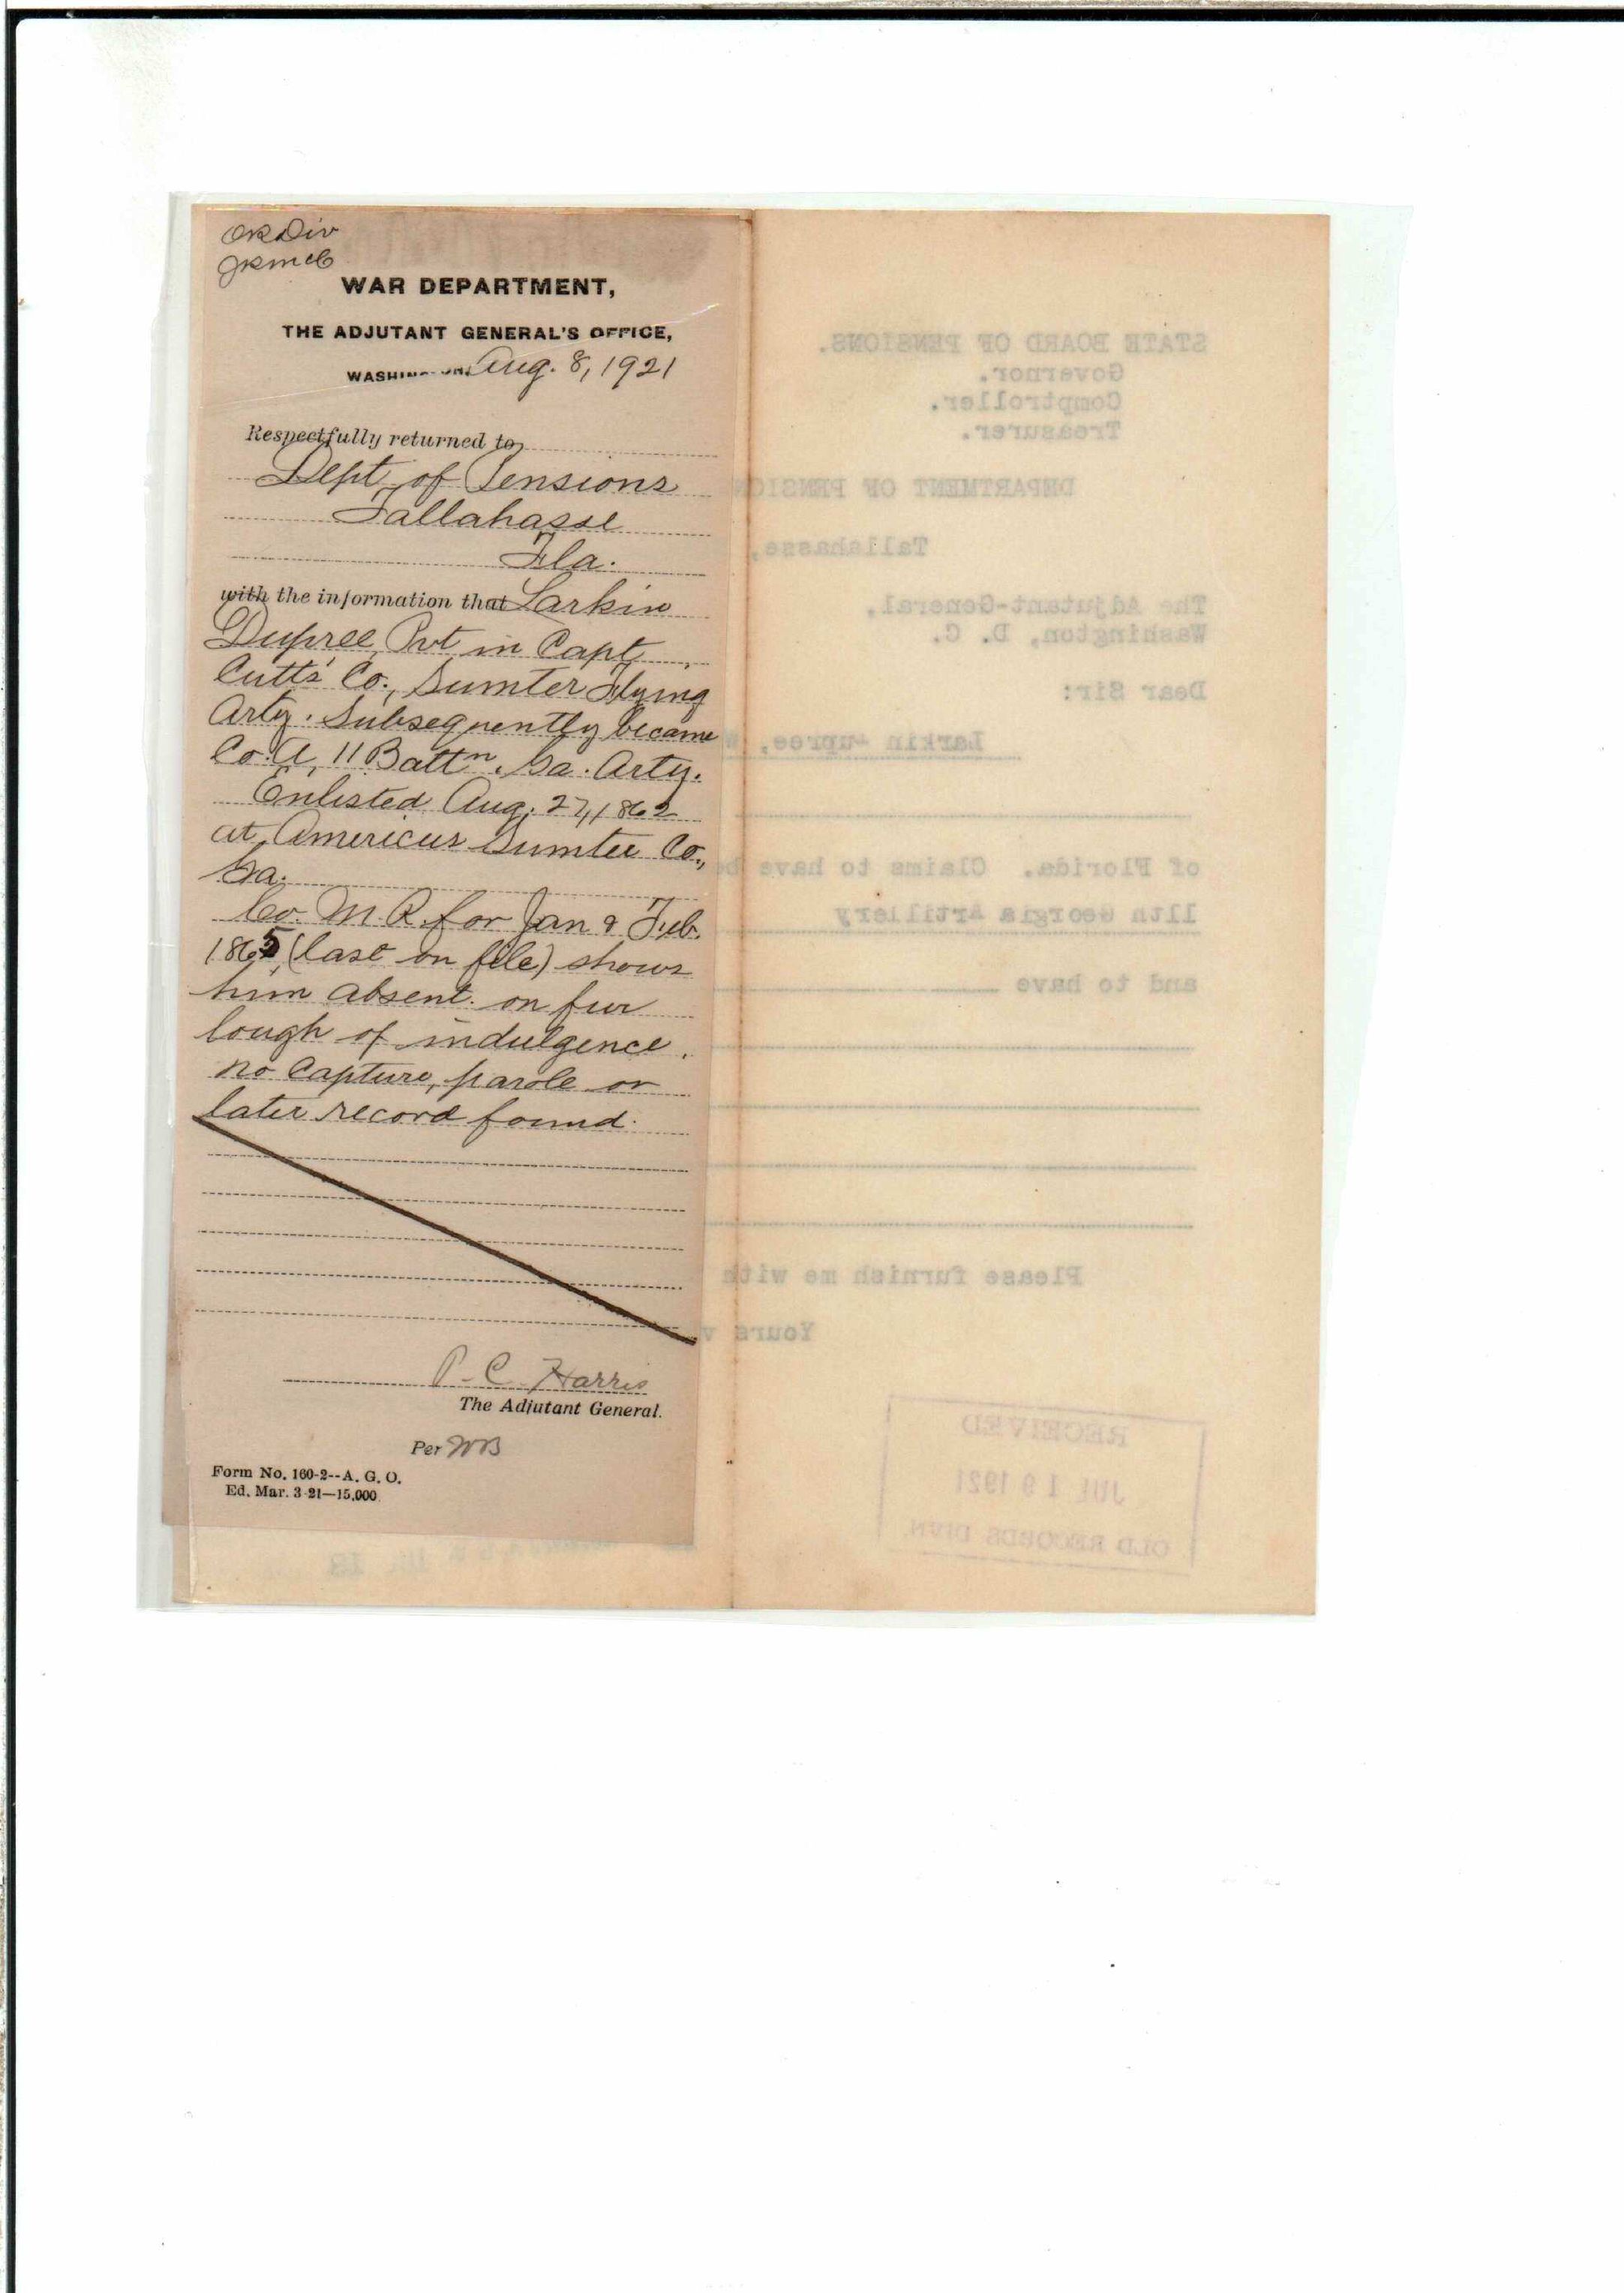 OR Div
JRMcC
WAR DEPARTMENT,
THE ADJUTANT GENERAL'S OFFICE,
WASHINGTON, Aug. 8, 1921
Respectfully returned to
Dept. of Pensions
Tallahasse
Fla.
with the information that Larkin
Dupree, Pvt in Capt.
Cutts' Co., Sumter Flying
Arty. Subsequently became
Co. A, 11 Battn. Ga. Arty.
Enlisted Aug. 27, 1862
at Americus Sumter Co.,
Ga.
Co. M.R. for Jan & Feb.
1865, (last on file) shows
him absent. on fur
lough of indulgence.
No capture, parole or
later record found.
P. C. Harris
The Adjutant General.
Per WB
Form No. 160-2--A. G. O.
Ed. Mar. 3-21—15,000
STATE BOARD OF PENSIONS.
Governor.
Comptroller.
Treasurer.
DEPARTMENT OF PENSION
Tallahasse,
The Adjutant-General,
Washington, D. C.
Dear Sir:
Larkin Dupree,
of Florida. Claims to have be
11th Georgia Artillery
and to have
Please furnish me with
Yours v
RECEIVED
JUL 19 1921
OLD RECORDS DIVN.